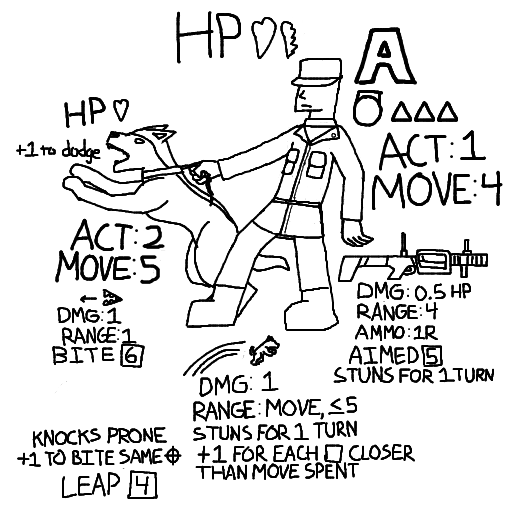 HP
A
HP
+1 to dodge
ACT: 1
MOVE: 4
ACT: 2
MOVE: 5
DMG: 1
RANGE: 1
BITE 6
DMG: 0.5 HP
RANGE: 4
AMMO: 1R
AIMED 5
STUNS FOR 1 TURN
DMG: 1
RANGE: MOVE, ≤5
STUNS FOR 1 TURN
+1 FOR EACH □ CLOSER
THAN MOVE SPENT
KNOCKS PRONE
+1 TO BITE SAME ⌖
LEAP 4